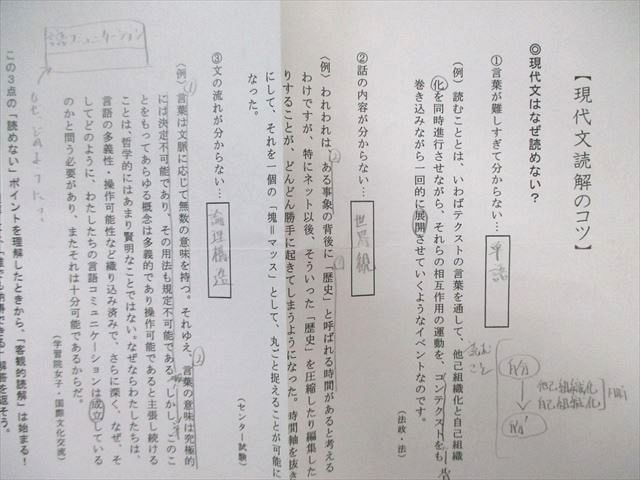 【現代文読解のコツ】
◎現代文はなぜ読めない？
①言葉が難しすぎて分からない…
単語
（例）読むこととは、いわばテクストの言葉を通して、他己組織化と自己組織
化を同時進行させながら、それらの相互作用の運動を、コンテクストをも
巻き込みながら一回的に展開させていくようなイベントなのです。
（法政・法）
読む
こと
他己組織化
自己組織化
②話の内容が分からない…
世界観
（例）われわれは、ある事象の背後に「歴史」と呼ばれる時間があると考える
わけですが、特にネット以後、そういった「歴史」を圧縮したり編集した
りすることが、どんどん勝手に起きてしまうようになった。時間軸を抜き
にして、それを一個の「塊＝マッス」として、丸ごと捉えることが可能に
なった。
（センター試験）
③文の流れが分からない…
論理構造
（例）言葉は文脈に応じて無数の意味を持つ。それゆえ、言葉の意味は究極的
には決定不可能であり、その用法も規定不可能である。しかし、このこ
とをもってあらゆる概念は多義的であり操作可能であると主張し続ける
ことは、哲学的にはあまり賢明なことではない。なぜならわたしたちは、
言語の多義性・操作可能性など織り込み済みで、さらに深く、なぜ、そ
してどのように、わたしたちの言語コミュニケーションは成立している
のかと問う必要があり、またそれは十分可能であるからだ。
（学習院女子・国際文化交流）
言語コミュニケーション
この３点の「読めない」ポイントを理解したときから、「客観的読解」は始まる！
「誰でも納得できる」解答を返そう。